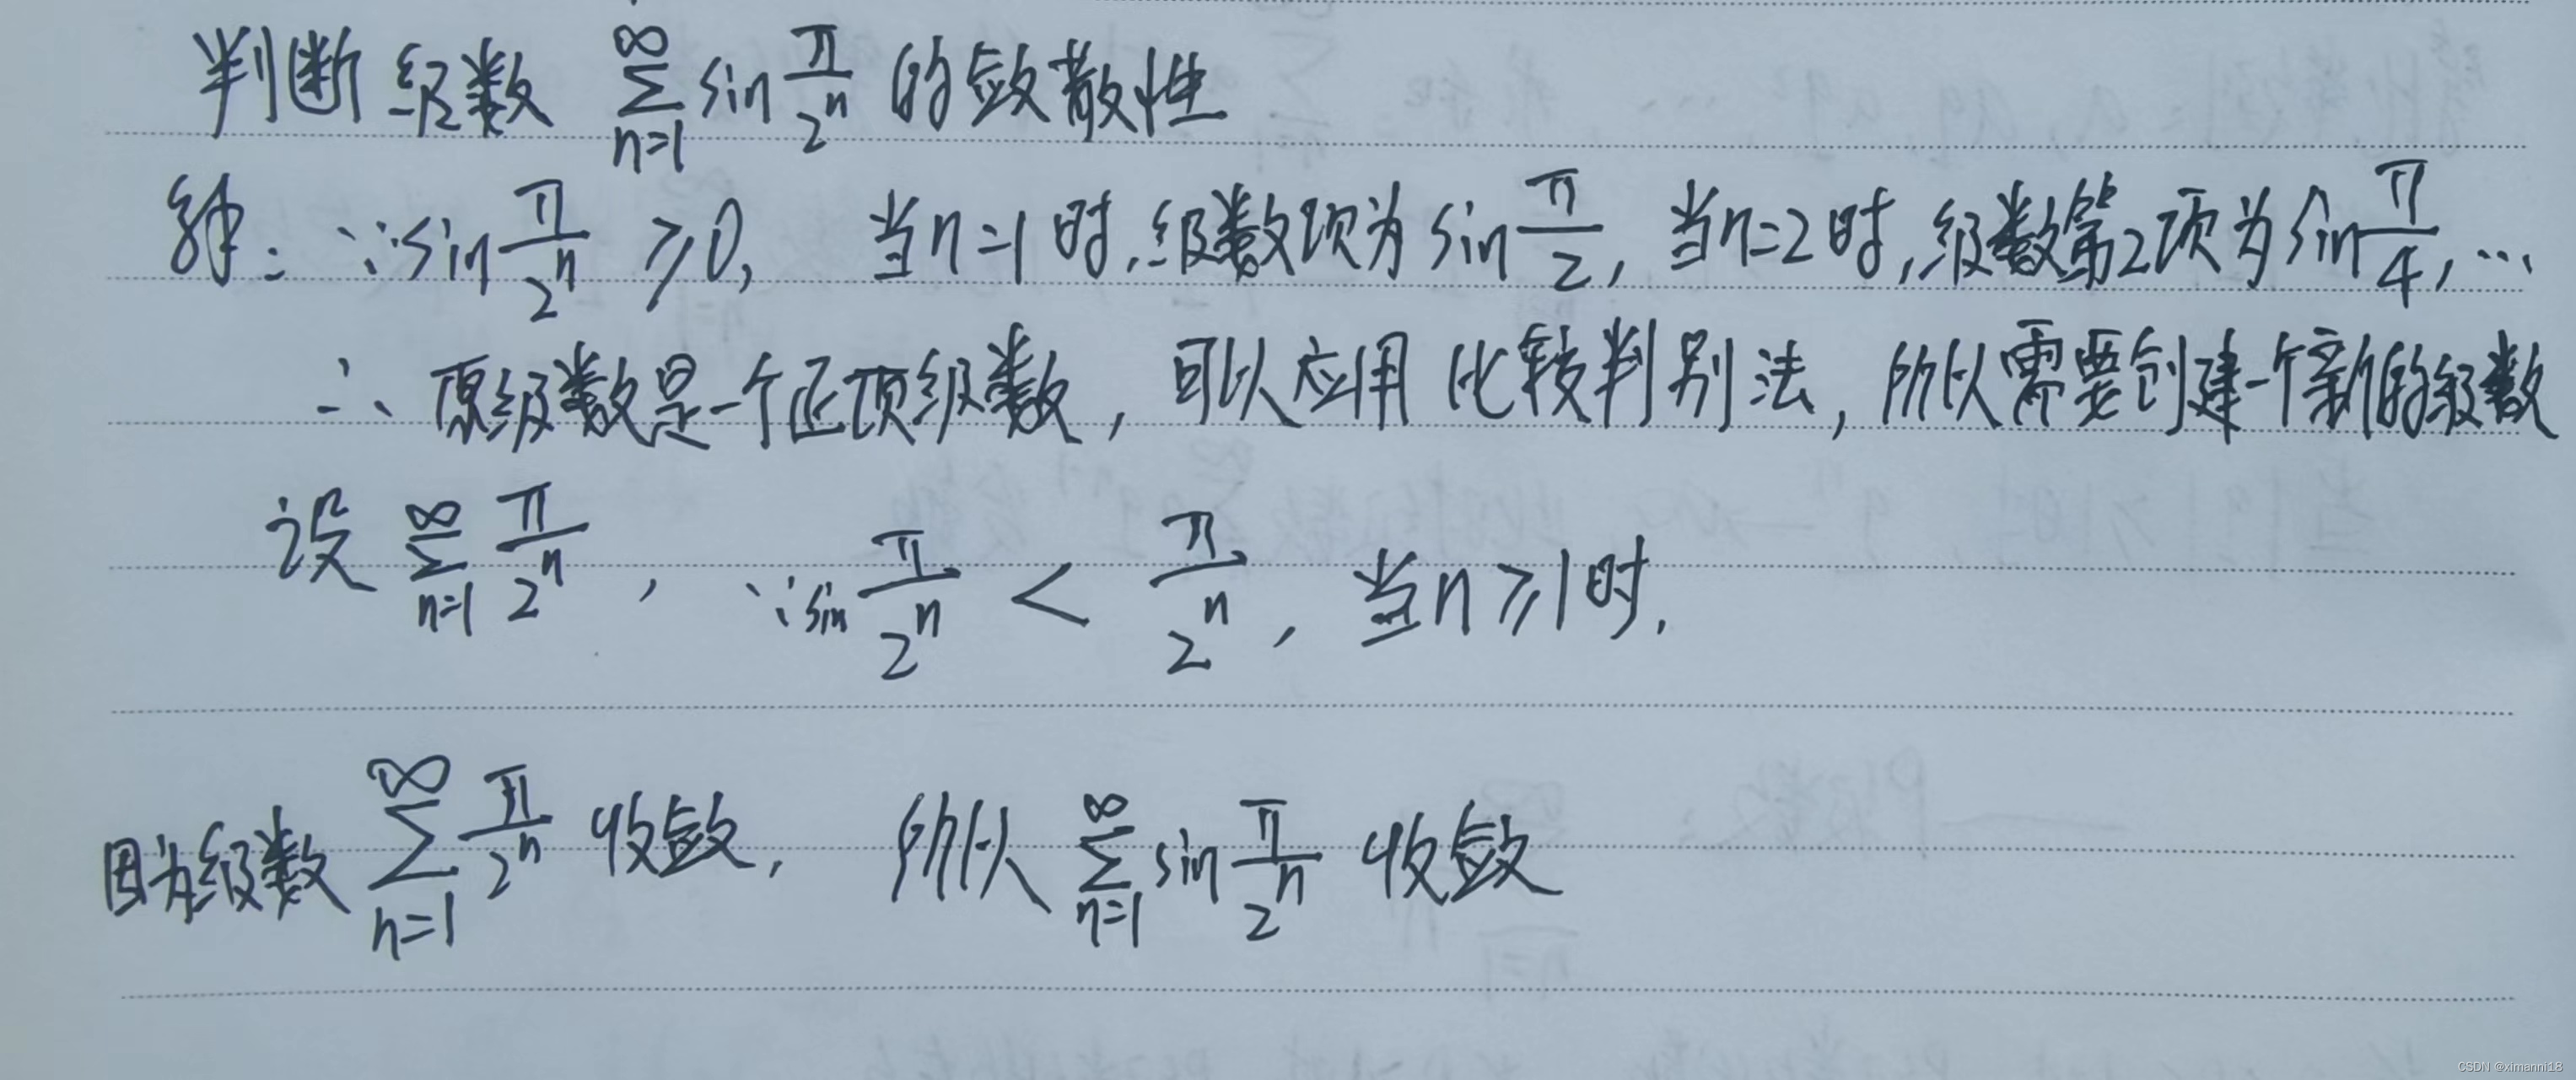 判断级数 ∑_{n=1}^{∞} sin π/2ⁿ 的敛散性
解: ∵ sin π/2ⁿ ⩾0, 当n=1时,级数项为 sin π/2, 当n=2时,级数第2项为 sin π/4, …
∴ 原级数是一个正项级数, 可以应用 比较判别法, 所以需要创建一个新的级数
设 ∑_{n=1}^{∞} π/2ⁿ, ∵ sin π/2ⁿ < π/2ⁿ, 当n⩾1时.
因为级数 ∑_{n=1}^{∞} π/2ⁿ 收敛, 所以 ∑_{n=1}^{∞} sin π/2ⁿ 收敛
CSDN @ximanni18